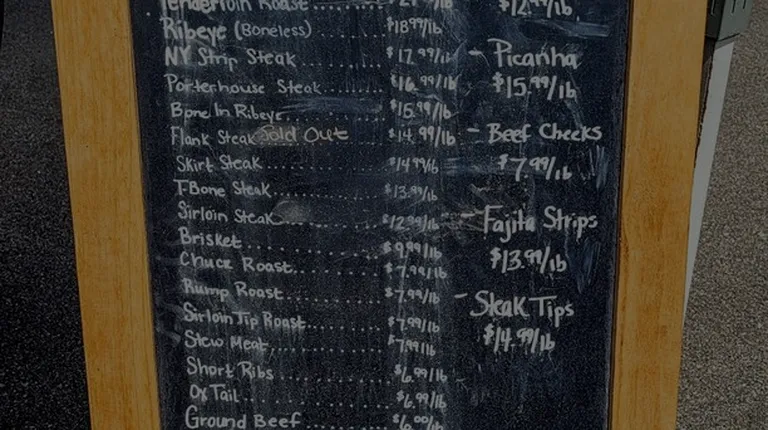 Tenderloin Roast......
$12.99/lb
Ribeye (Boneless) $18.99/lb
NY Strip Steak $17.99/lb
Porterhouse Steak $16.99/lb
Bone In Ribeye $15.99/lb
Flank Steak Sold Out $14.99/lb
Skirt Steak $14.99/lb
T-Bone Steak $13.99/lb
Sirloin Steak $12.99/lb
Brisket $9.99/lb
Chuck Roast $7.99/lb
Rump Roast $7.99/lb
Sirloin Tip Roast $7.99/lb
Stew Meat $7.99/lb
Short Ribs $6.99/lb
Ox Tail $6.99/lb
Ground Beef $6.00/lb
- Picanha
$15.99/lb
- Beef Cheeks
$7.99/lb
- Fajita Strips
$13.99/lb
- Steak Tips
$14.99/lb